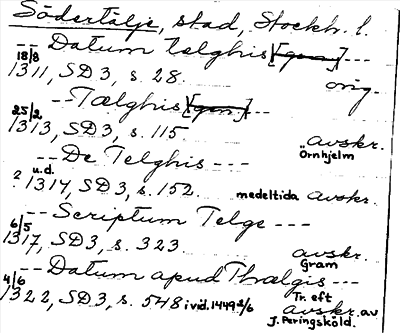 Södertälje, stad, Stockh. l.
-- Datum telghis [gen] ---
18/8 1311, SD 3, s. 28. orig.
-- Tælghis [gen] ---
25/2 1313, SD 3, s. 115. avskr. Örnhjelm
-- De Telghis ---
u.d. 1314, SD 3, s. 152. medeltida avskr.
-- Scriptum Telge ---
6/5 1317, SD 3, s. 323 avskr. Gram
-- Datum apud Thælgis ---
4/6 1322, SD 3, s. 548 i vid. 1449 2/6 Tr. eft avskr. av J. Peringsköld.